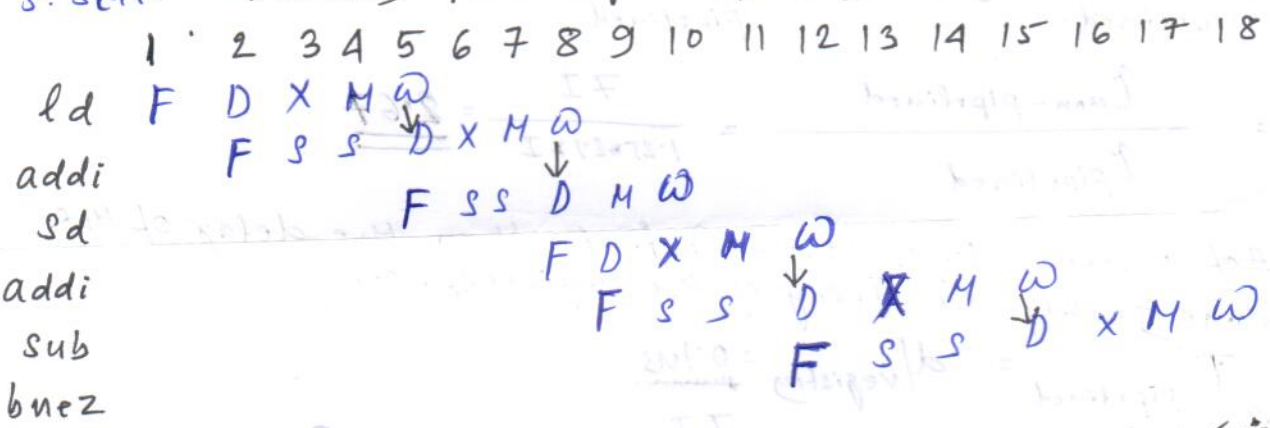 1 2 3 4 5 6 7 8 9 10 11 12 13 14 15 16 17 18
ld F D X M W
addi F S S D X M W
sd F S S D M W
addi F D X M W
sub F S S D X M W
bnez F S S D X M W